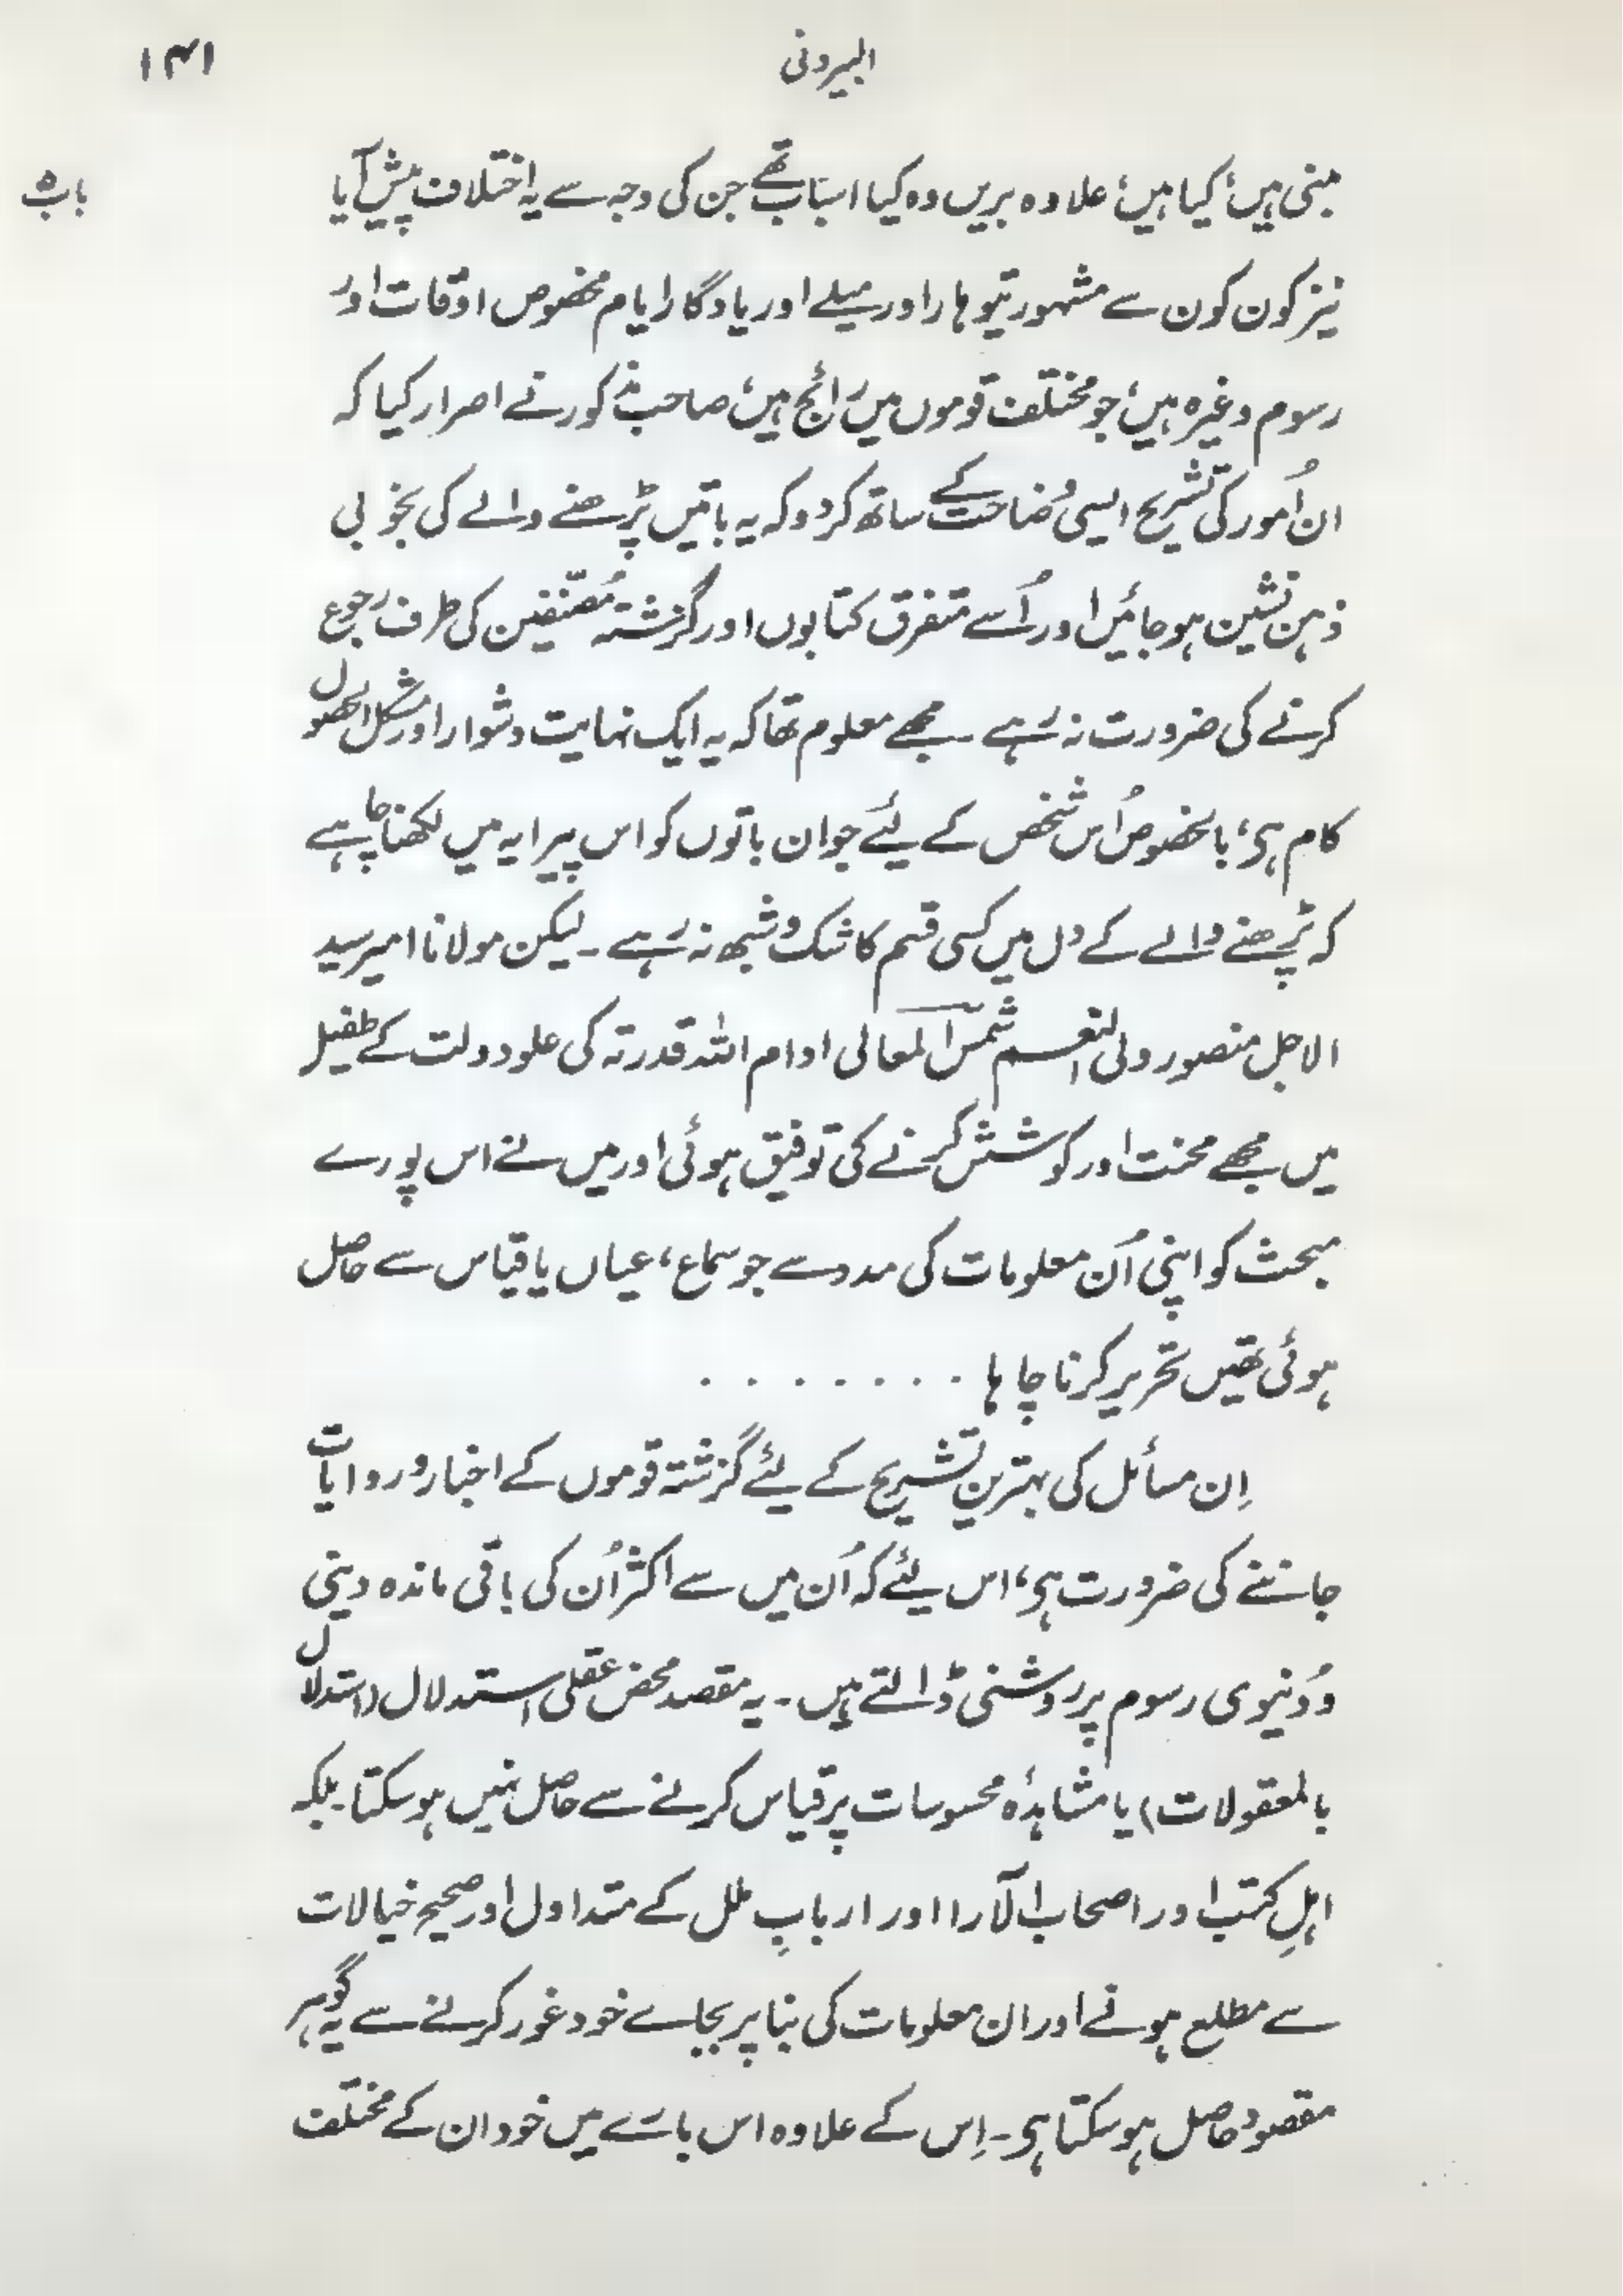 البیرونی
۱۴۱
باب ۵
مبنی ہیں؛ کیا ہیں؛ علاوہ بریں وہ کیا اسباب تھے جن کی وجہ سے یہ اختلاف پیش آیا
نیز کون کون سے مشہور تیوہار اور میلے اور یادگار ایام مخصوص اوقات اور
رسوم وغیرہ ہیں؛ جو مختلف قوموں میں رائج ہیں؛ صاحب مذکور نے اصرار کیا کہ
ان اُمور کی تشریح ایسی وضاحت کے ساتھ کر دو کہ یہ باتیں پڑھنے والے کی بخوبی
ذہن نشین ہو جائیں اور اُسے متفرق کتابوں اور گزشتہ مُصنّفین کی طرف رجوع
کرنے کی ضرورت نہ رہے ۔ مجھے معلوم تھا کہ یہ ایک نہایت دشوار اور مشکل الحصول
کام ہی؛ بالخصوص اُس شخص کے لیئے جو ان باتوں کو اس پیرایہ میں لکھنا چاہے
کہ پڑھنے والے کے دل میں کسی قسم کا شک و شبھ نہ رہے ۔ لیکن مولانا امیر سید
الاجل منصور ولی النعم شمس المعالی ادام اللہ قدرتہ کی علو دولت کے طفیل
میں مجھے محنت اور کوشش کرنے کی توفیق ہوئی اور میں نے اس پورے
مبحث کو اپنی اُن معلومات کی مدد سے جو سماع، عیاں یا قیاس سے حاصل
ہوئی تھیں تحریر کرنا چاہا . . . . . . . .
اِن مسائل کی بہترین تشریح کے لیئے گزشتہ قوموں کے اخبار و روایات
جاننے کی ضرورت ہی؛ اس لیئے کہ اُن میں سے اکثر اُن کی باقی ماندہ دینی
و دُنیوی رسوم پر روشنی ڈالتے ہیں ۔ یہ مقصد محض عقلی استدلال (استدلال
بالمعقولات) یا مشاہدۂ محسوسات پر قیاس کرنے سے حاصل نہیں ہو سکتا ۔ بلکہ
اہلِ کتب اور اصحاب الآرا اور اربابِ ملل کے متداول اور صحیح خیالات
سے مطلع ہونے اور ان معلومات کی بنا پر بجاے خود غور کرنے سے یہ گوہر
مقصود حاصل ہو سکتا ہی ۔ اِس کے علاوہ اس بارے میں خود ان کے مختلف